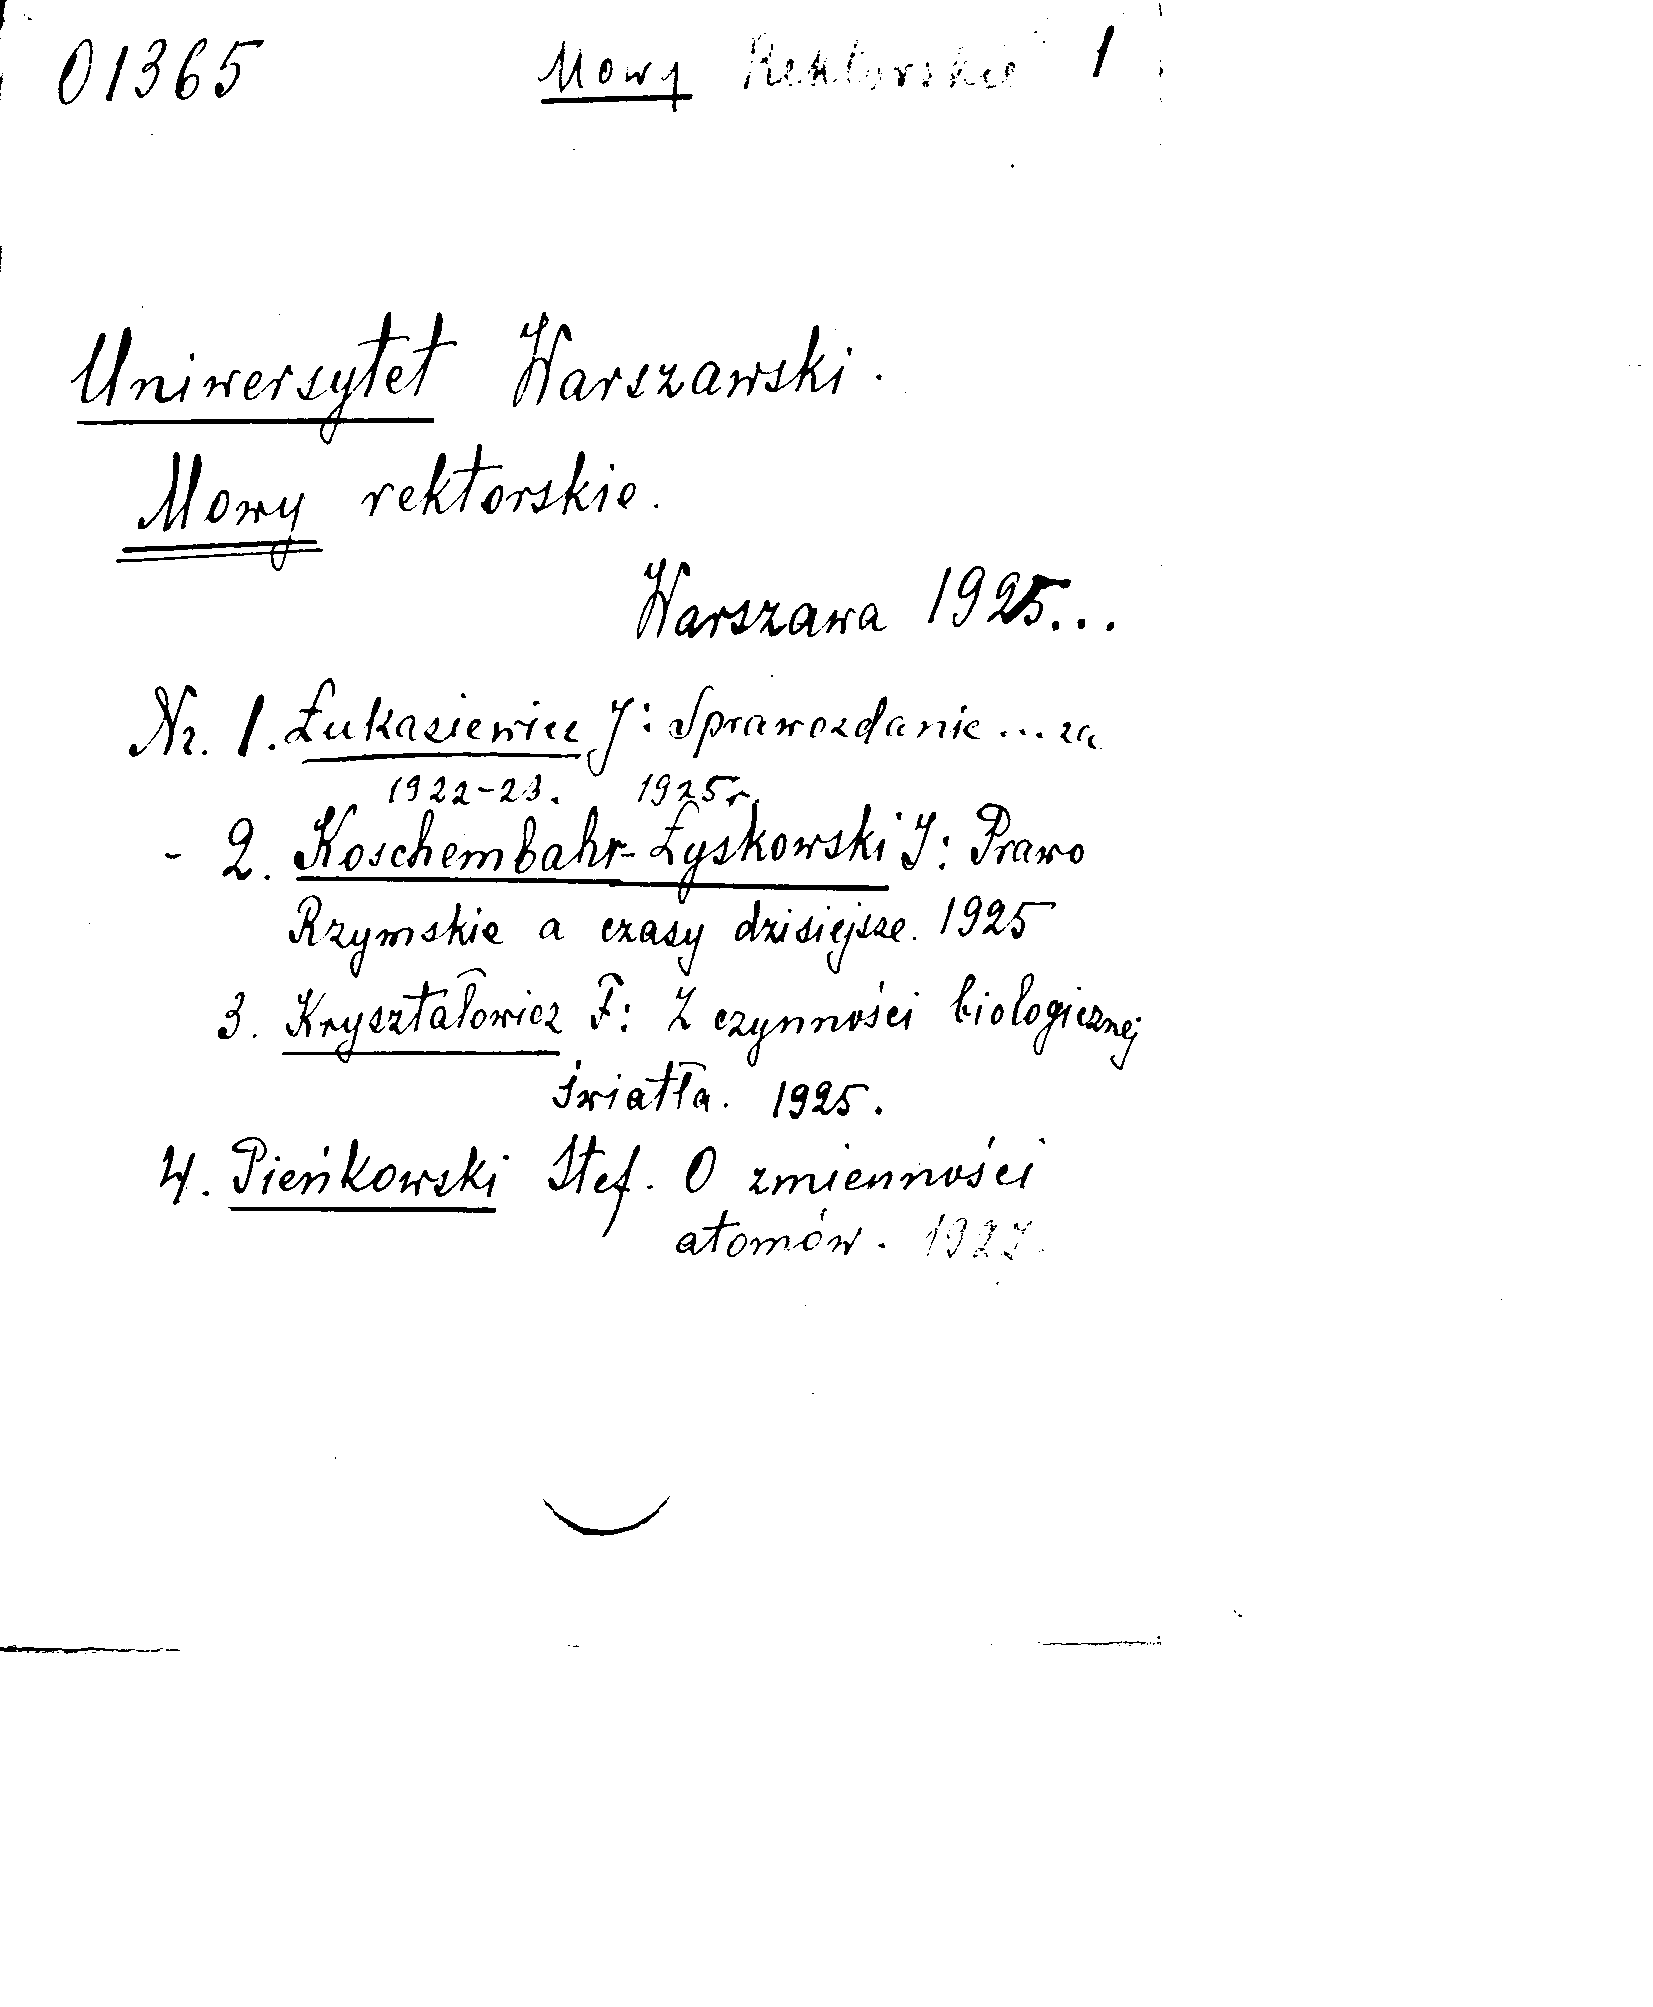 01365 Mowy Rektorskie 1
Uniwersytet Warszawski.
Mowy rektorskie.
Warszawa 1925...
Nr. 1. Łukasiewicz J: Sprawozdanie ... za
1922-23. 1925 r.
- 2. Koschembahr-Łyskowski J: Prawo
Rzymskie a czasy dzisiejsze. 1925
3. Kryształowicz F: Z czynności biologicznej
światła. 1925.
4. Pieńkowski Stef. O zmienności
atomów. 1927.